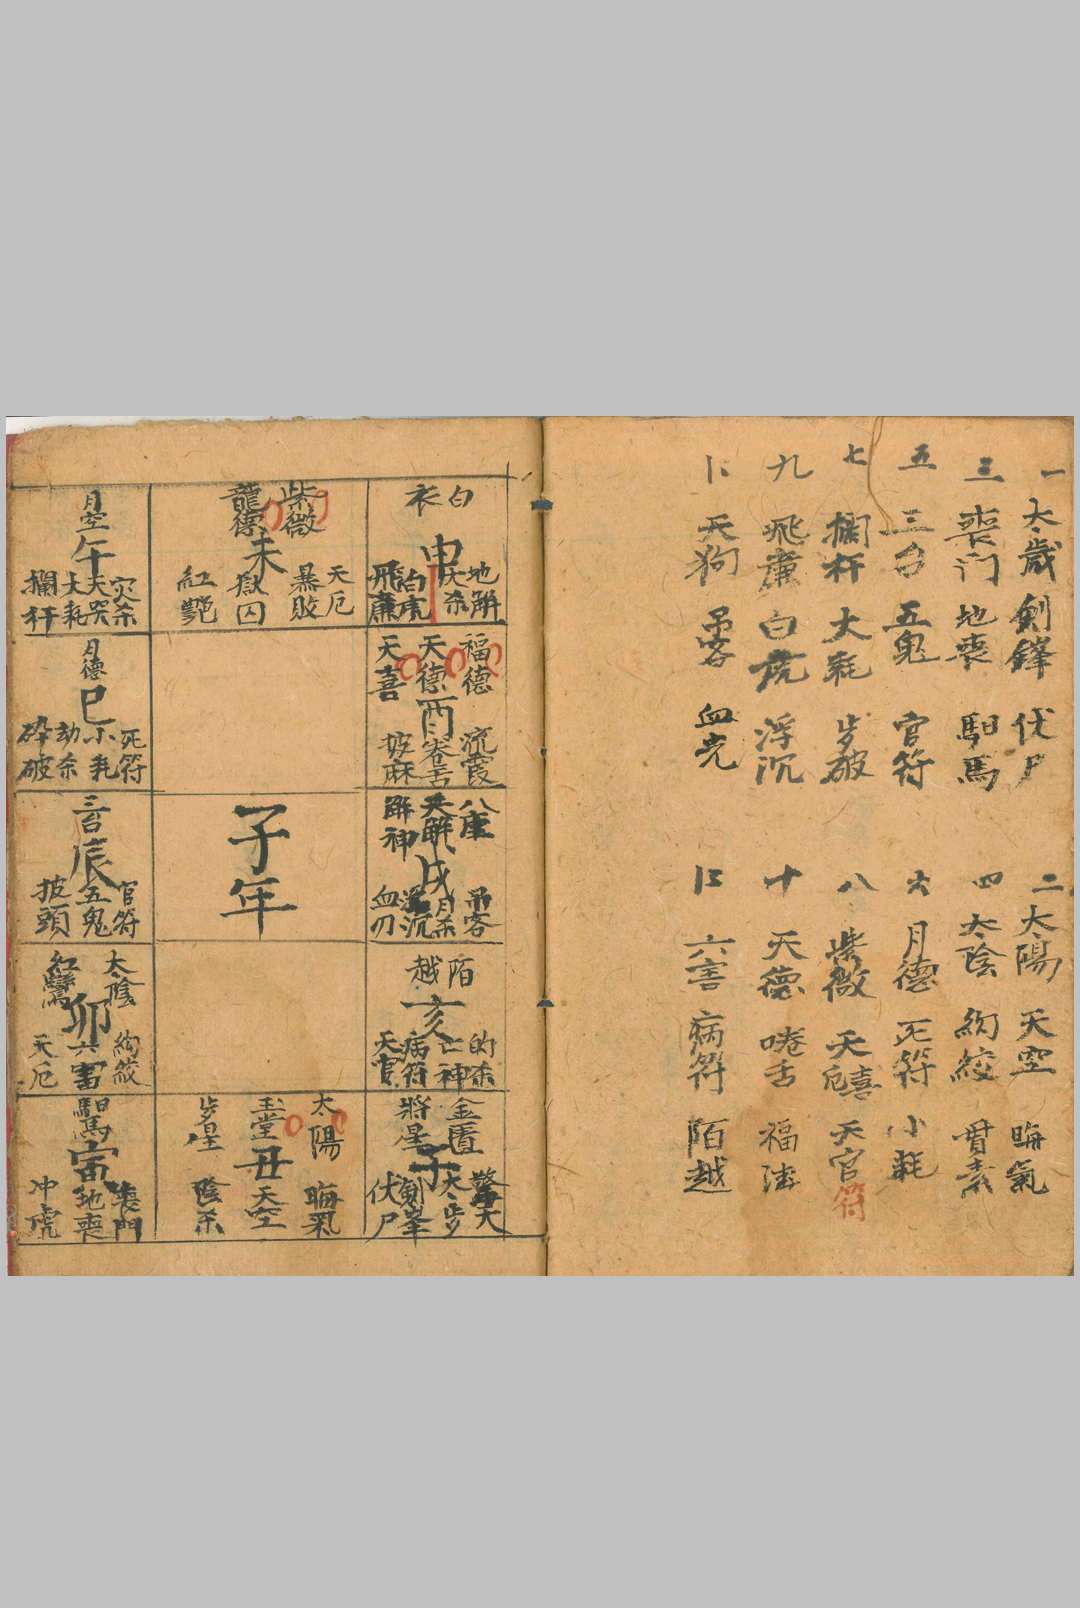 一 太歲 劍鋒 伏尸
二 太陽 天空 晦氣
三 喪门 地喪 馹馬
四 太陰 絢絞 貫索
五 三台 五鬼 官符
六 月德 死符 小耗
七 攔杆 大耗 岁破
八 紫微 天厄 天喜 天官符
九 飛廉 白虎 浮沉
十 天德 啳舌 福德
天狗 吊客 血光
六害 病符 陌越
白衣
申
地解 大杀 白虎 飛廉
紫微 龍德
未
天厄 暴敗 獄囚 紅艷
月空
午
灾杀 天哭 大耗 攔杆
福德 天德 天喜
酉
流霞 披麻
月德
巳
死符 小耗 劫杀 碎破
八座 天解 解神
戌
吊客 月杀 浮沉 血刃
子年
三台
辰
官符 五鬼 披頭
陌越
亥
的杀 亡神 病符 天官
太陰 紅鸞
卯
絢絞 六害 天厄
金匱 將星
子
太岁 劍峯 伏尸
太陽 玉堂 岁星
丑
晦氣 天空 陰杀
馹馬
寅
喪門 地喪 冲虎